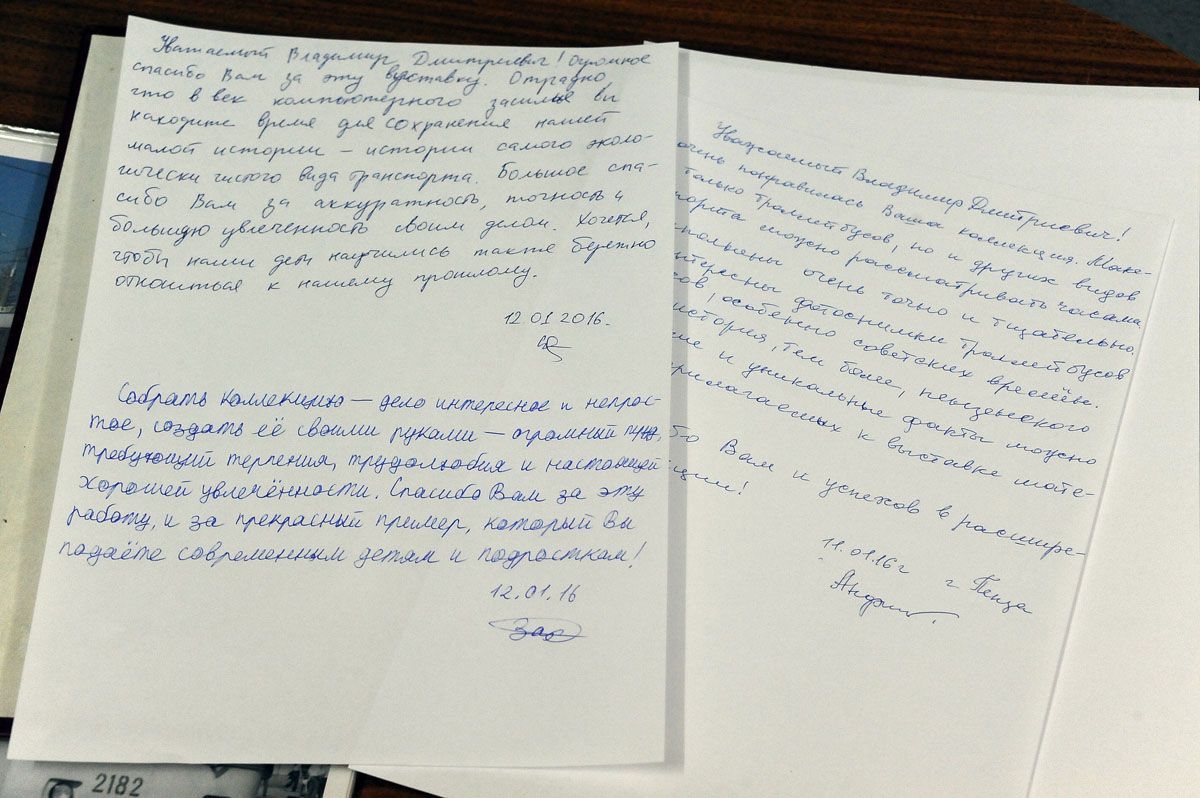 Уважаемый Владимир Дмитриевич! Огромное
спасибо Вам за эту выставку. Отрадно,
что в век компьютерного засилья вы
находите время для сохранения нашей
малой истории – истории самого эколо-
гически чистого вида транспорта. Большое спа-
сибо Вам за аккуратность, точность и
большую увлеченность своим делом. Хочется,
чтобы наши дети научились также бережно
относиться к нашему прошлому.
12.01.2016.
Собрать коллекцию – дело интересное и непрос-
тое, создать её своими руками – огромный труд,
требующий терпения, трудолюбия и настоящей
хорошей увлечённости. Спасибо Вам за эту
работу, и за прекрасный пример, который Вы
подаёте современным детям и подросткам!
12.01.16
Уважаемый Владимир Дмитриевич!
очень понравилась Ваша коллекция. Маке-
только троллейбусов, но и других видов
порта можно рассматривать часами.
полнены очень точно и тщательно.
нтересны фотоснимки троллейбусов
сов, особенно советских времён.
история, тем более, пензенского
ие и уникальные факты можно
прилагаемых к выставке мате-
бо Вам и успехов в расшире-
ции!
11.01.16г г. Пенза
2182